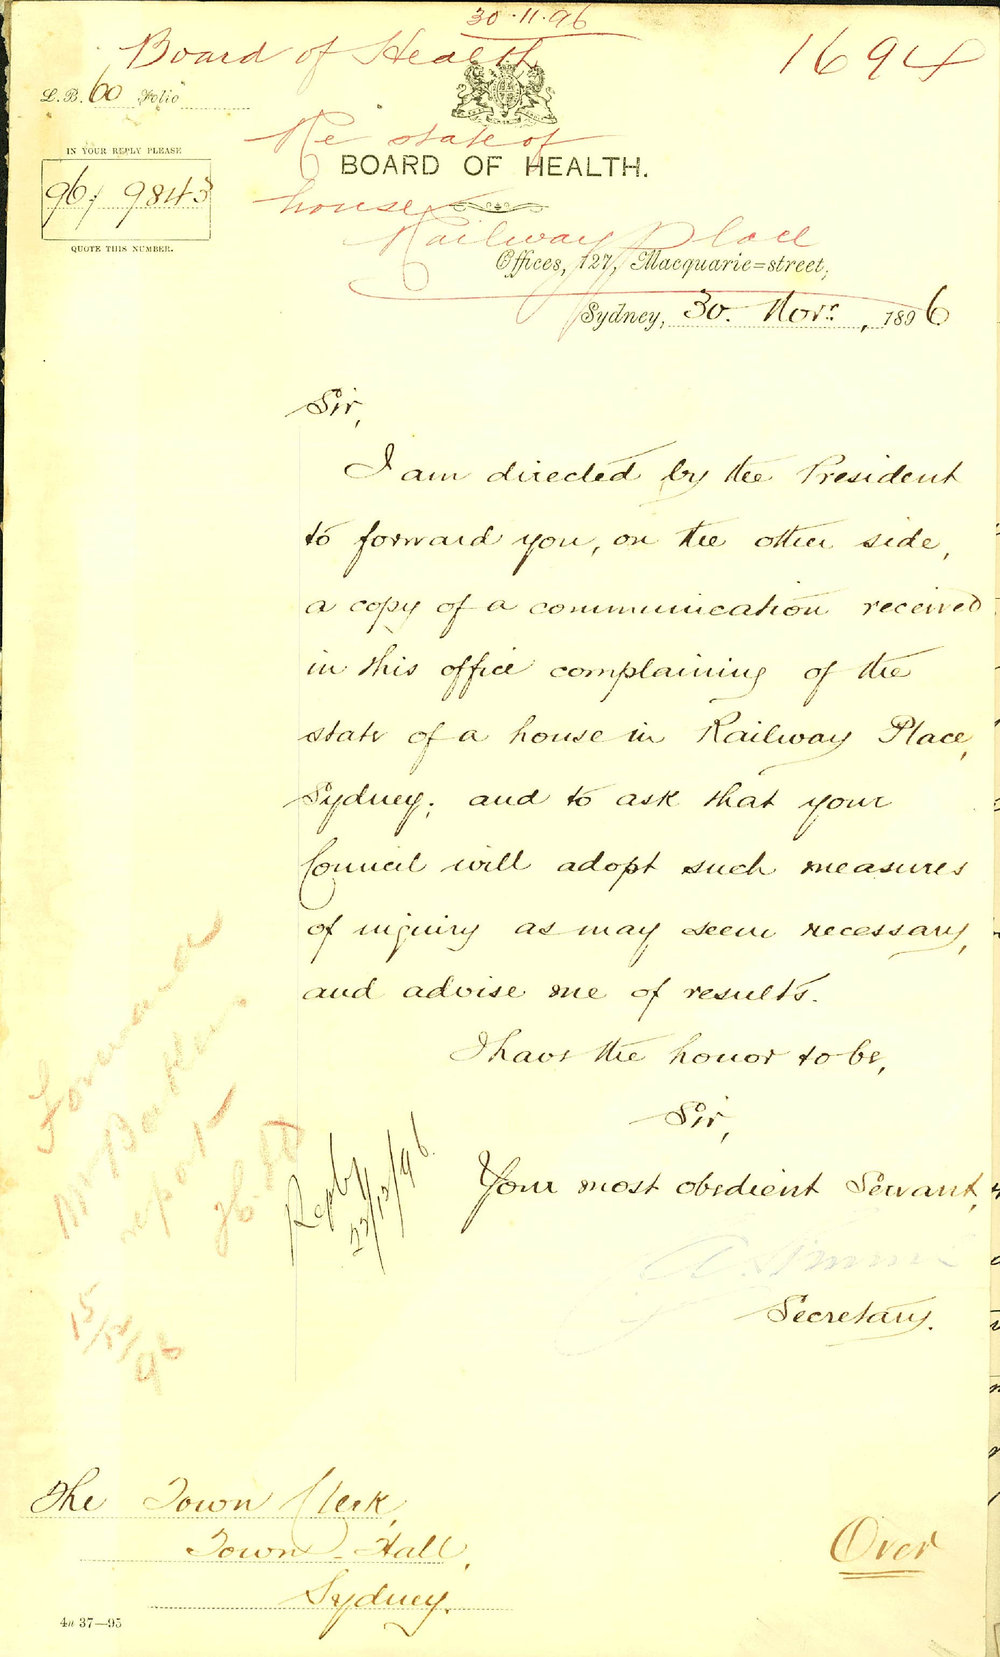 30.11.96
Board of Health
1694
L.B. 60 Folio
Re state of
IN YOUR REPLY PLEASE
BOARD OF HEALTH.
96/ 9843
house
QUOTE THIS NUMBER.
Railway Place
Offices, 127, Macquarie=street,
Sydney, 30. Novr. , 1896
Sir,
I am directed by the President
to forward you, on the other side,
a copy of a communication received
in this office complaining of the
state of a house in Railway Place,
Sydney; and to ask that your
Council will adopt such measures
of inquiry as may seem necessary,
and advise me of results.
I have the honor to be,
Sir,
Your most obedient Servant,
Secretary.
Forward
Mr
report
15/12/96
Reply
22/12/96.
The Town Clerk,
Town Hall,
Sydney.
Over
4a 37—95